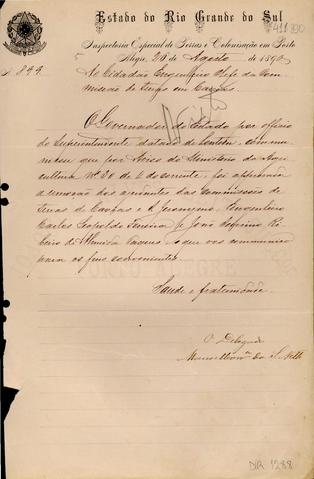 Estado do Rio Grande do Sul
Inspectoria Especial de Terras e Colonisação em Porto
Alegre, 20 de Agosto de 1890
N. 844
Ao Cidadão Engenheiro Chefe da Com
missão de terras em Caxias.
O Governador do Estado por officio
do Superintendente datado de hontem, commu
nica que por Aviso do Ministerio da Agri
cultura Nº 20 de 2 do corrente, foi approvada
a remoção dos ajudantes das Commissões de
terras de Caxias e S. Jeronymo, Engenheiros
Carlos Leopoldo e João
beiro de Almeida o que vos communico
para os fins convenientes
Saude e fraternidade
O Delegado
DIR 1288